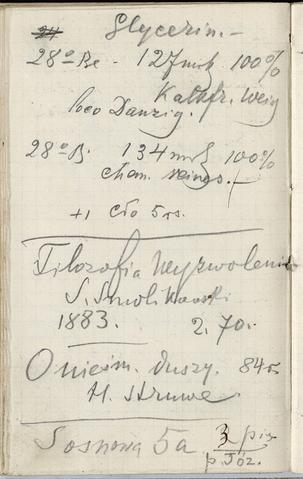 24 Glycerin.-
28° Be - 127 mrk 100%
Kalkfr. weiß
loco Danzig.
28° B. 134 mrk 100%
chem. reines.-
+1 cło 5 rs.
Filozofia Wyzwolenia
S. Smolikowski
1883. 2.70.-
O nieśm. duszy. 84
H. Struwe
Sosnowa 5a 3 pię
p. Józ.